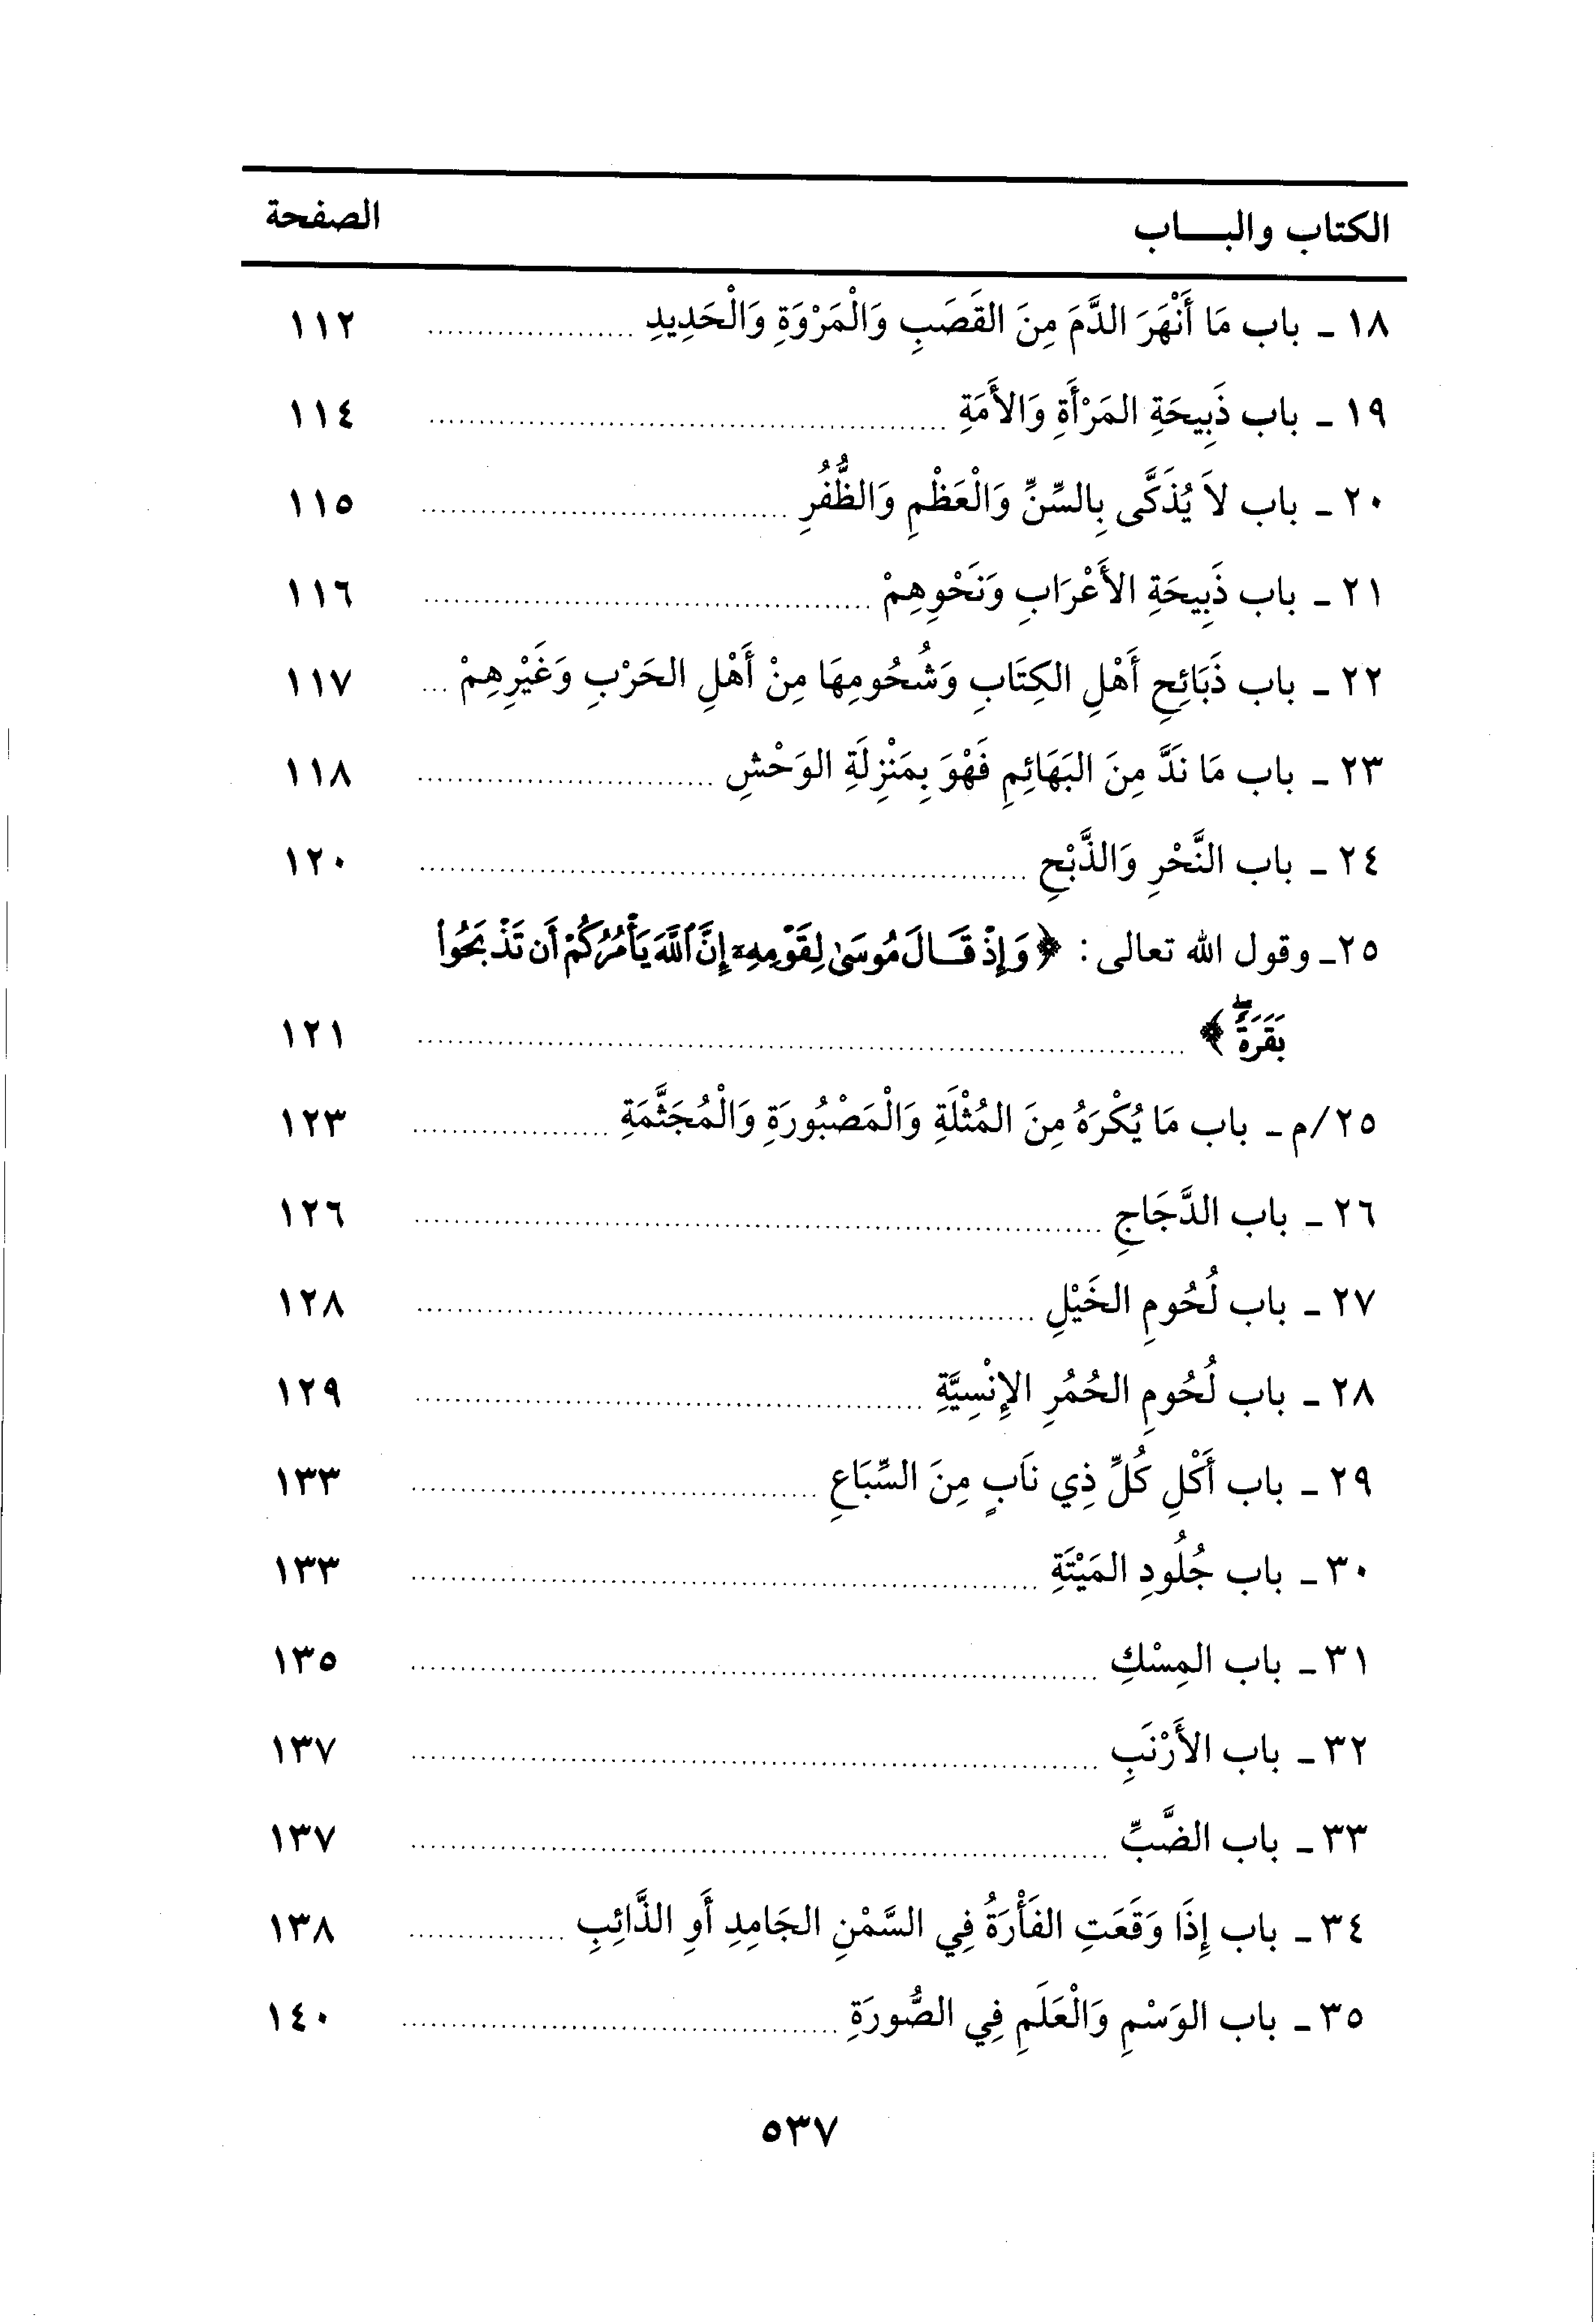 الكتاب والبـــاب الصفحة
١٨ - باب مَا أَنْهَرَ الدَّمَ مِنَ القَصَبِ وَالْمَرْوَةِ وَالْحَدِيدِ ..................... ١١٢
١٩ - باب ذَبِيحَةِ المَرْأَةِ وَالأَمَةِ ..................... ١١٤
٢٠ - باب لاَ يُذَكَّى بِالسِّنِّ وَالْعَظْمِ وَالظُّفُرِ ..................... ١١٥
٢١ - باب ذَبِيحَةِ الأَعْرَابِ وَنَحْوِهِمْ ..................... ١١٦
٢٢ - باب ذَبَائِحِ أَهْلِ الكِتَابِ وَشُحُومِهَا مِنْ أَهْلِ الحَرْبِ وَغَيْرِهِمْ ... ١١٧
٢٣ - باب مَا نَدَّ مِنَ البَهَائِمِ فَهْوَ بِمَنْزِلَةِ الوَحْشِ ..................... ١١٨
٢٤ - باب النَّحْرِ وَالذَّبْحِ ..................... ١٢٠
٢٥- وقول الله تعالى: ﴿وَإِذْ قَالَ مُوسَىٰ لِقَوْمِهِۦٓ إِنَّ ٱللَّهَ يَأْمُرُكُمْ أَن تَذْبَحُوا۟
بَقَرَةًۖ﴾ ..................... ١٢١
٢٥/م - باب مَا يُكْرَهُ مِنَ المُثْلَةِ وَالْمَصْبُورَةِ وَالْمُجَثَّمَةِ ..................... ١٢٣
٢٦ - باب الدَّجَاجِ ..................... ١٢٦
٢٧ - باب لُحُومِ الخَيْلِ ..................... ١٢٨
٢٨ - باب لُحُومِ الحُمُرِ الإِنْسِيَّةِ ..................... ١٢٩
٢٩ - باب أَكْلِ كُلِّ ذِي نَابٍ مِنَ السِّبَاعِ ..................... ١٣٣
٣٠ - باب جُلُودِ المَيْتَةِ ..................... ١٣٣
٣١ - باب المِسْكِ ..................... ١٣٥
٣٢ - باب الأَرْنَبِ ..................... ١٣٧
٣٣ - باب الضَّبِّ ..................... ١٣٧
٣٤ - باب إِذَا وَقَعَتِ الفَأْرَةُ فِي السَّمْنِ الجَامِدِ أَوِ الذَّائِبِ ..................... ١٣٨
٣٥ - باب الوَسْمِ وَالْعَلَمِ فِي الصُّورَةِ ..................... ١٤٠
٥٣٧